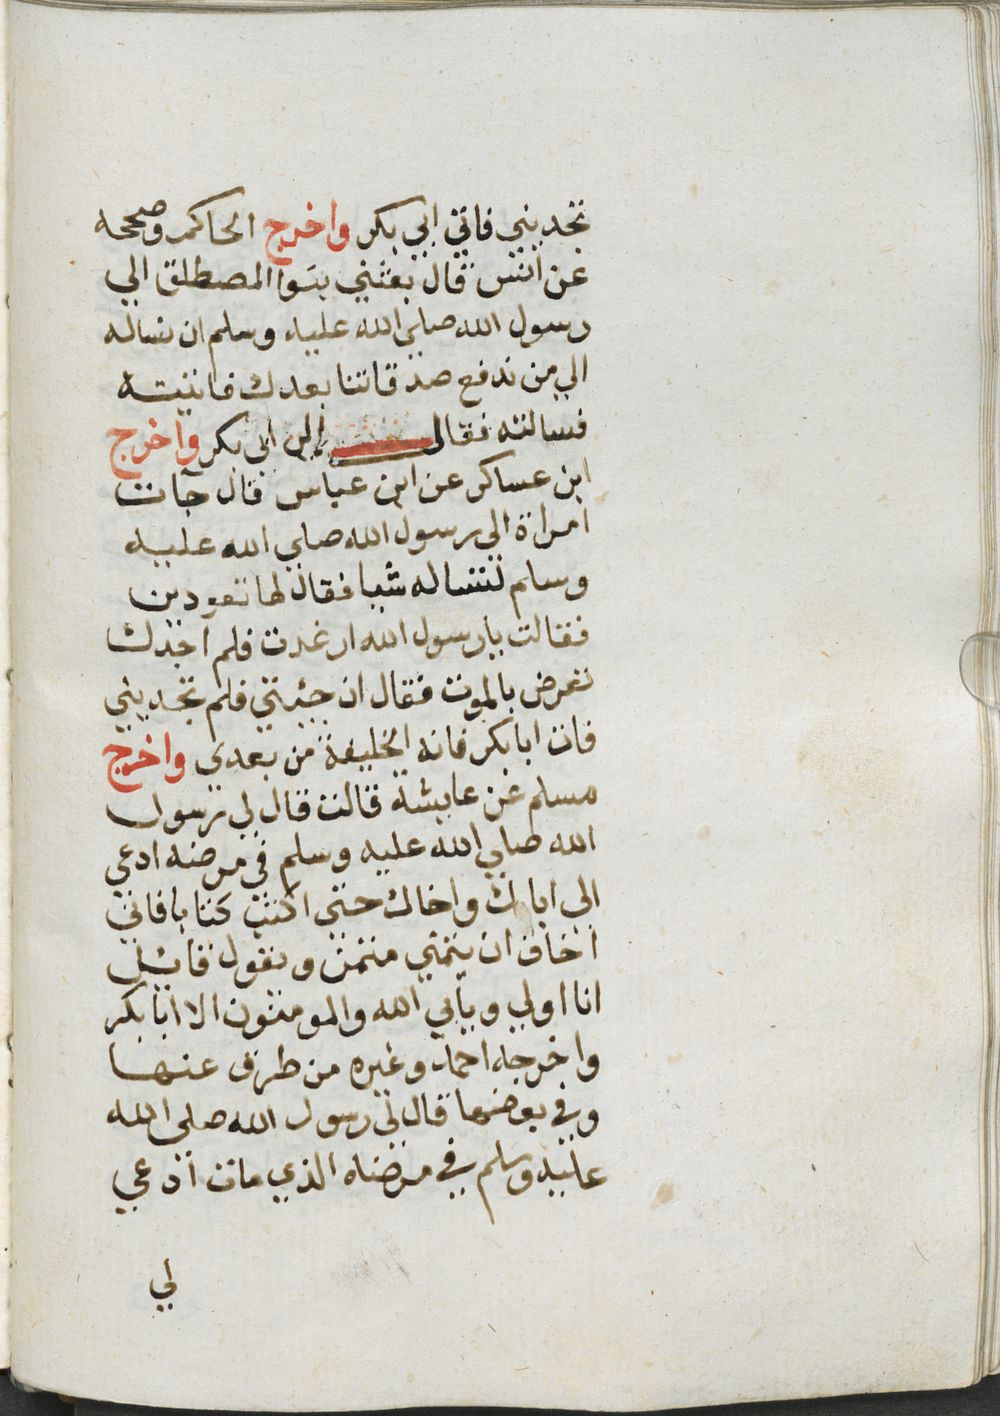 تجديني فاتي ابي بكر واخرج الحاكم وصححه
عن انس قال بعثني بنوا المصطلق الي
رسول الله صلي الله عليه وسلم ان نساله
الي من ندفع صدقاتنا بعدك فاتيته
فسالته فقال الي ابي بكر واخرج
ابن عساكر عن ابن عباس قال جآت
امراة الي رسول الله صلي الله عليه
وسلم تنساله شيا فقال لها تعودين
فقالت يا رسول الله ان عدت فلم اجدك
تعرض بالموت فقال ان جئتي فلم تجديني
فات ابا بكر فانه الخليفة من بعدي واخرج
مسلم عن عايشة قالت قال لي رسول
الله صلي الله عليه وسلم في مرضه ادعي
الي اباك واخاك حتي اكتب كتابا فاني
اخاف ان يتمني متمن ويقول قائل
انا اولي ويابي الله والمومنون الا ابا بكر
واخرجه احمد وغيره من طرق عنها
وفي بعضها قال لي رسول الله صلي الله
عليه وسلم في مرضاه الذي مات ادعي
لي